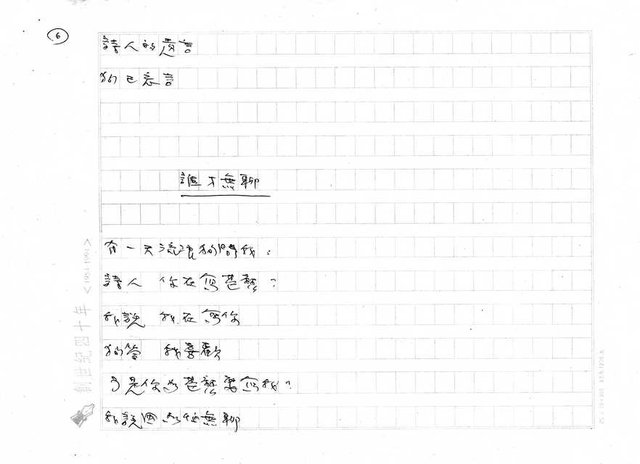 6
詩人的遺言
狗已忘言
誰才無聊
有一天流浪狗問我：
詩人 你在寫甚麼？
我說 我在寫你
狗答 我喜歡
可是你為甚麼要寫我？
我說因為你無聊
創世紀四十年